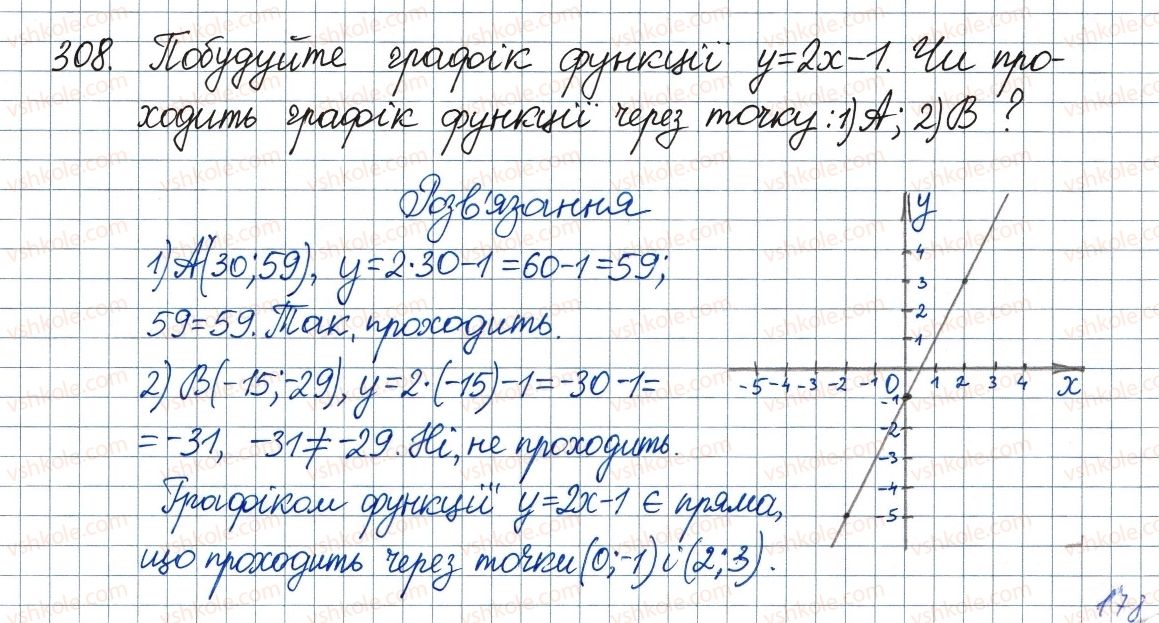 308. Побудуйте графік функції y=2x-1. Чи про-
ходить графік функції через точку: 1) A; 2) B ?
Розв'язання
1) A(30;59), y=2·30-1=60-1=59;
59=59. Так, проходить.
2) B(-15;-29), y=2·(-15)-1=-30-1=
=-31, -31≠-29. Ні, не проходить.
Графіком функції y=2x-1 є пряма,
що проходить через точки (0;-1) і (2;3).
y
4
3
2
1
-5 -4 -3 -2 -1 0 1 2 3 4 x
-1
-2
-3
-4
-5
178
vshkole.com